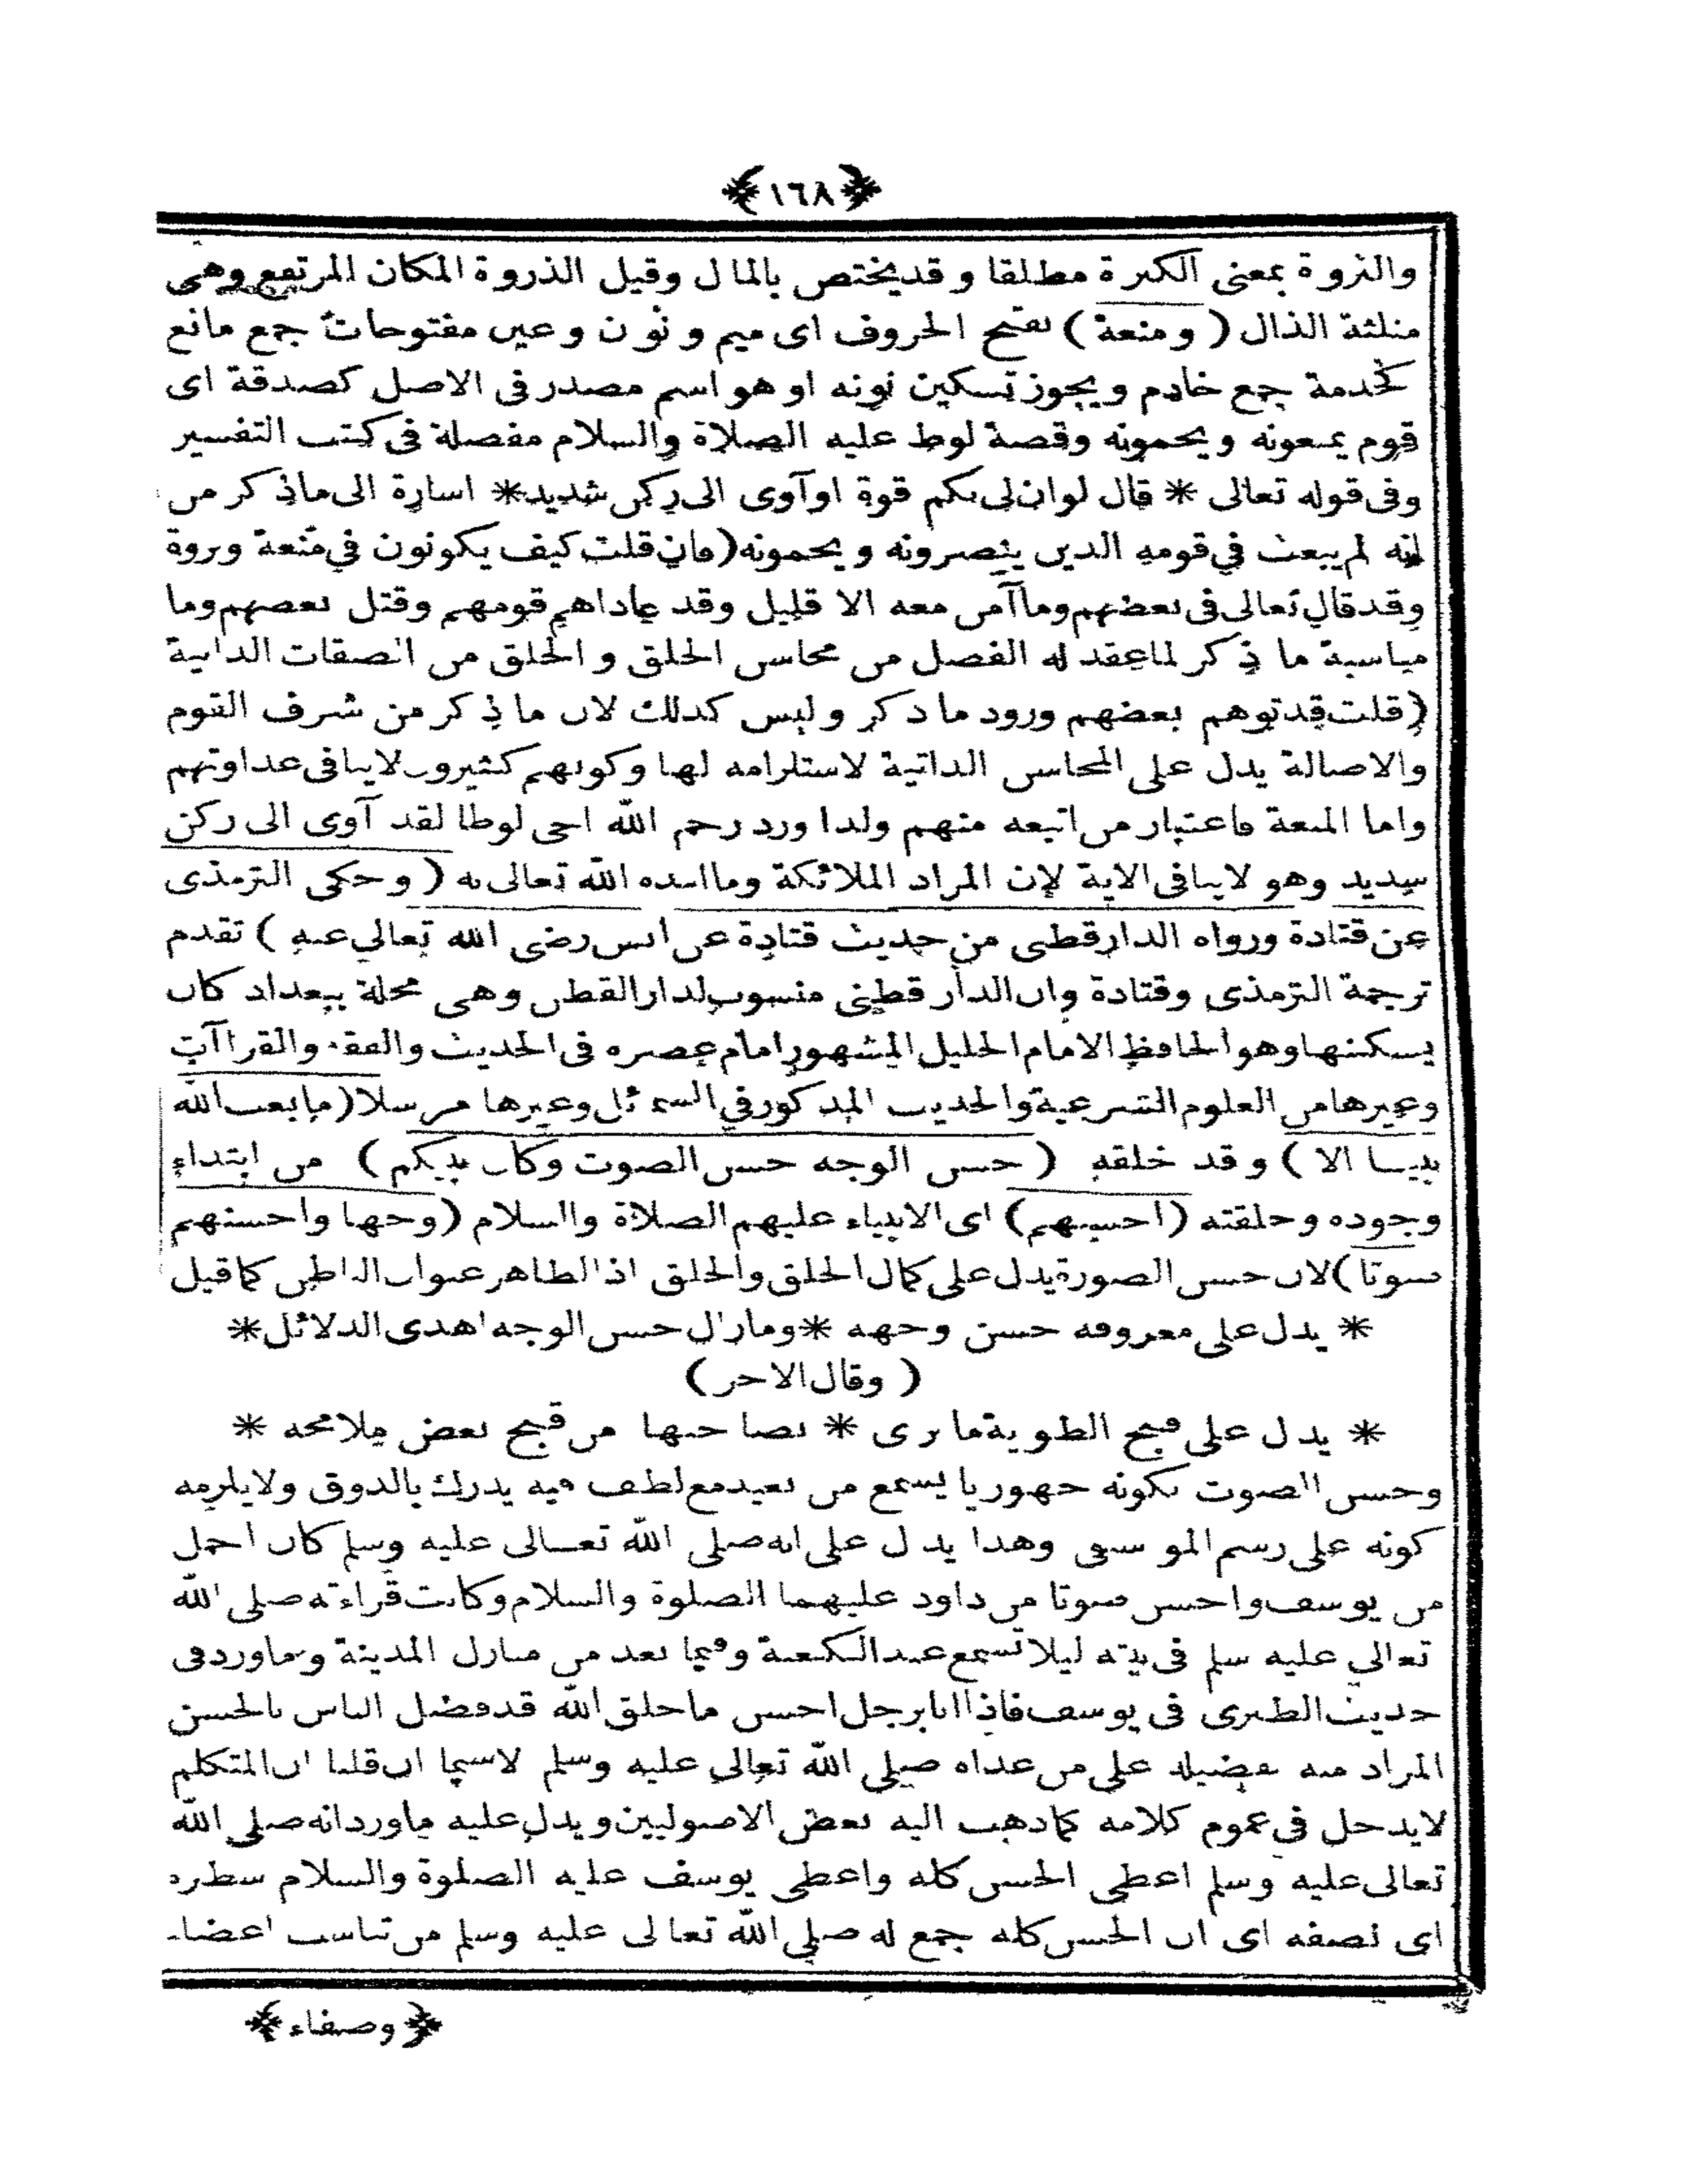 ﴿١٦٨﴾
والثروة بمعنى الكثرة مطلقا وقد يختص بالمال وقيل الذروة المكان المرتفع وهى
مثلثة الذال ( ومنعة ) بفتح الحروف اى ميم ونون وعين مفتوحات جمع مانع
كخدمة جمع خادم ويجوز تسكين نونه او هو اسم مصدر فى الاصل كصدقة اى
قوم يمنعونه ويحمونه وقصة لوط عليه الصلاة والسلام مفصلة فى كتب التفسير
وفى قوله تعالى * قال لو ان لى بكم قوة او آوى الى ركن شديد * اشارة الى ما ذكر من
انه لم يبعث فى قومه الذين ينصرونه ويحمونه (فان قلت كيف يكونون فى منعة وثروة
وقد قال تعالى فى بعضهم وما آمن معه الا قليل وقد عاداهم قومهم وقتل بعضهم وما
مناسبة ما ذكر لما عقد له الفصل من محاسن الخلق والخلق من الصفات الذاتية
(قلت قد توهم بعضهم ورود ما ذكر وليس كذلك لان ما ذكر من شرف القوم
والاصالة يدل على المحاسن الذاتية لاستلزامه لها وكونهم كثيرون لا ينافى عداوتهم
واما المنعة فاعتبار من اتبعه منهم ولذا ورد رحم الله اخى لوطا لقد آوى الى ركن
شديد وهو لا ينافى الاية لان المراد الملائكة وما ايده الله تعالى به ( وحكى الترمذى
عن قتادة ورواه الدارقطنى من حديث قتادة عن انس رضى الله تعالى عنه ) تقدم
ترجمة الترمذى وقتادة وان الدار قطينى منسوب لدار القطن وهى محلة ببغداد كان
يسكنها وهو الحافظ الامام الجليل المشهور امام عصره فى الحديث والفقه والقراآت
وغيرها من العلوم الشرعية والحديث المذكور فى الشمائل وغيرها مرسلا (ما بعث الله
نبيا الا ) وقد خلقه ( حسن الوجه حسن الصوت وكان نبيكم ) من ابتداء
وجوده وخلقته (احسنهم) اى الانبياء عليهم الصلاة والسلام (وجها واحسنهم
صوتا) لان حسن الصورة يدل على كمال الخلق والخلق اذ الظاهر عنوان الباطن كما قيل
* يدل على معروفه حسن وجهه * وما زال حسن الوجه اهدى الدلائل *
( وقال الاخر )
* يدل على قبح الطوية ما يرى * بصاحبها من قبح بعض ملامحه *
وحسن الصوت بكونه جهوريا يسمع من بعيد مع لطف فيه يدرك بالذوق ولا يلزمه
كونه على رسم الموسيقى وهذا يدل على انه صلى الله تعالى عليه وسلم كان اجمل
من يوسف واحسن صوتا من داود عليهما الصلوة والسلام وكانت قراءته صلى الله
تعالى عليه سلم فى بيته ليلا تسمع عند الكعبة وفيما بعد من منازل المدينة وما ورد فى
حديث الطبرى فى يوسف فاذا انا برجل احسن ما خلق الله قد فضل الناس بالحسن
المراد منه تفضيله على من عداه صلى الله تعالى عليه وسلم لاسيما ان قلنا ان المتكلم
لا يدخل فى عموم كلامه كما ذهب اليه بعض الاصوليين ويدل عليه ما ورد انه صلى الله
تعالى عليه وسلم اعطى الحسن كله واعطى يوسف عليه الصلوة والسلام شطره
اى نصفه اى ان الحسن كله جمع له صلى الله تعالى عليه وسلم من تناسب اعضاء
﴿وصفاء﴾